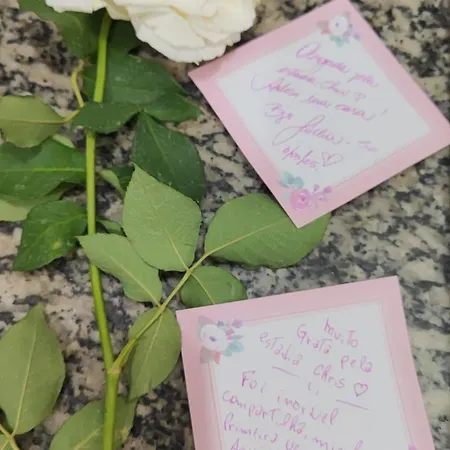 Obrigada pela
estadia Chris ♡
Adorei sua casa!
Bjs
Muito
Grata pela
estadia Chris ♡
Foi incrível
compartilhar
Primeira